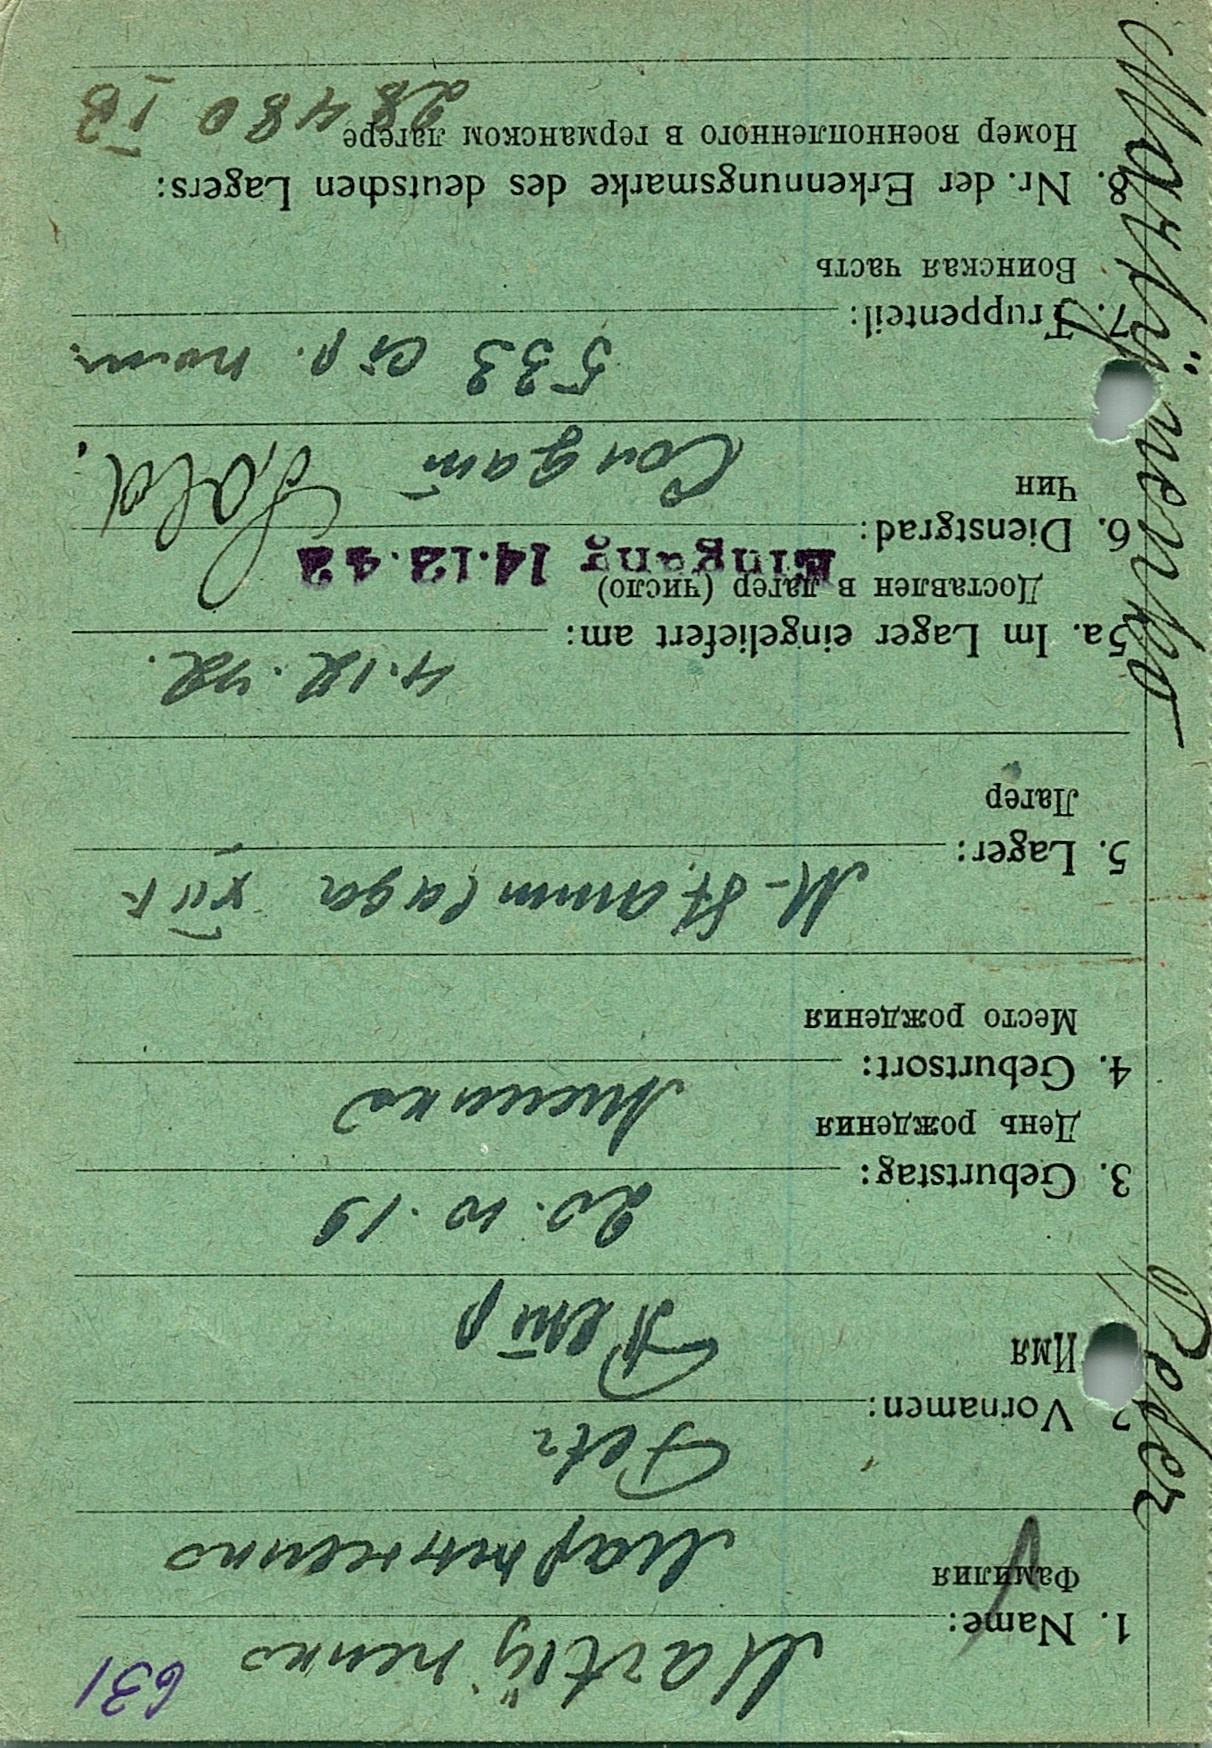 631
Martÿnenko
1. Name:
Фамилия
Мартыненко
Petr
2. Vornamen:
Имя
Петр
20.10.19
3. Geburtstag:
День рождения
4. Geburtsort:
Место рождения
M-Stammlager
5. Lager:
Лагер
4.12.42.
5a. Im Lager eingeliefert am:
Доставлен в лагер (число)
Eingang 14.12.42
6. Dienstgrad:
Чин
Солдат Sold.
533
7. Truppenteil:
Воинская часть
8. Nr. der Erkennungsmarke des deutschen Lagers:
Номер военнопленного в германском лагере
28480 IB
Peter Martÿnenko